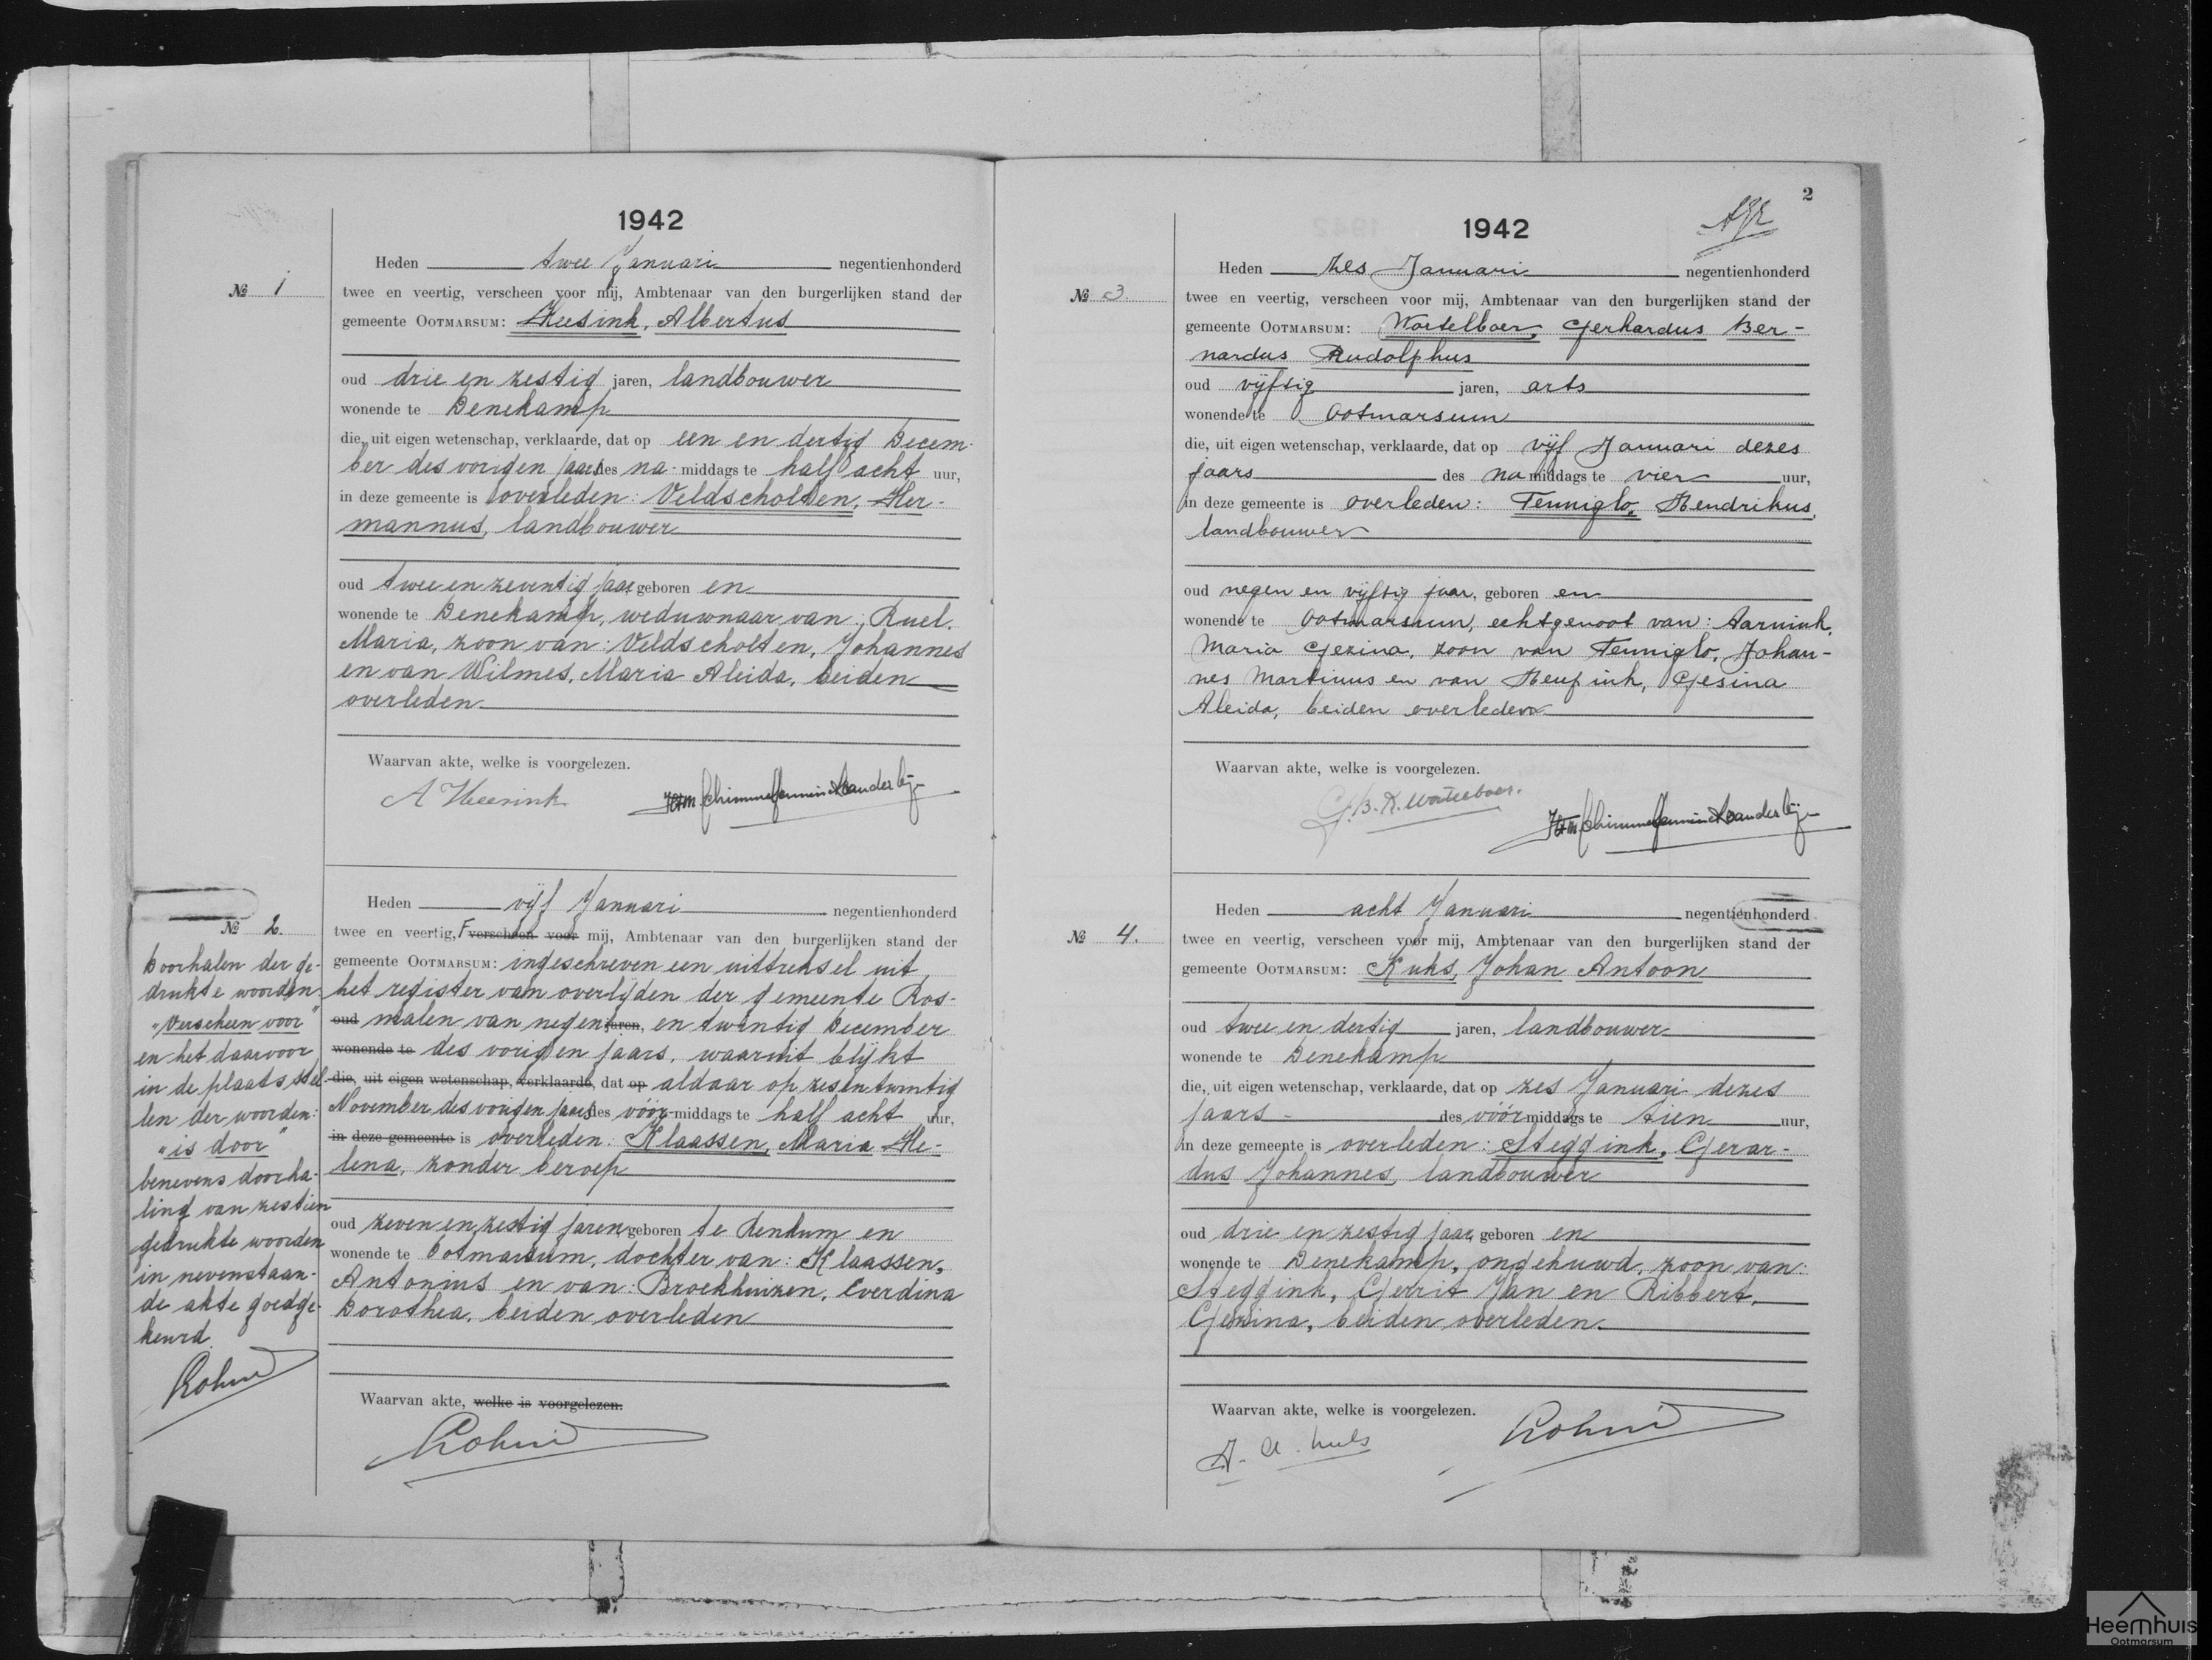 1942
Heden twee Januari negentienhonderd
№ 1
twee en veertig, verscheen voor mij, Ambtenaar van den burgerlijken stand der
gemeente OOTMARSUM: Albertus
oud drie en zestig jaren, landbouwer
wonende te Denekamp
die, uit eigen wetenschap, verklaarde, dat op een en dertig Decem-
ber des vorigen jaars des na-middags te half acht uur,
in deze gemeente is overleden: Veldscholten, Her-
mannus, landbouwer
oud twee en zeventig jaar, geboren en
wonende te Denekamp, weduwnaar van: Ruel,
Maria, zoon van: Veldscholten, Johannes
en van Wilmes, Maria Aleida, beiden
overleden.
Waarvan akte, welke is voorgelezen.
Heden vijf Januari negentienhonderd
№ 2.
twee en veertig, verscheen voor mij, Ambtenaar van den burgerlijken stand der
gemeente OOTMARSUM: ingeschreven een uittreksel uit
het register van overlijden der gemeente Ros-
oud malen van negen jaren, en twintig December
wonende te des vorigen jaars, waaruit blijkt
die, uit eigen wetenschap, verklaarde, dat op aldaar op zes en twintig
November des vorigen jaars des vóór-middags te half acht uur,
in deze gemeente is overleden: Klaassen, Maria He-
lena, zonder beroep
oud zeven en zestig jaren, geboren te Renkum en
wonende te Ootmarsum, dochter van: Klaassen,
Antonius en van: Broekhuizen, Everdina
Dorothea, beiden overleden
Waarvan akte, welke is voorgelezen.
Doorhalen der ge-
drukte woorden
"Verscheen voor"
en het daarvoor
in de plaats stel-
len der woorden:
"is door"
benevens doorha-
ling van zestien
gedrukte woorden
in nevenstaan-
de akte goedge-
keurd.
2
1942
Heden zes Januari negentienhonderd
№ 3.
twee en veertig, verscheen voor mij, Ambtenaar van den burgerlijken stand der
gemeente OOTMARSUM: Wortelboer, Gerhardus Ber-
nardus Rudolphus
oud vijftig jaren, arts
wonende te Ootmarsum
die, uit eigen wetenschap, verklaarde, dat op vijf Januari dezes
jaars des na middags te vier uur,
in deze gemeente is overleden: Tenniglo, Hendrikus,
landbouwer
oud negen en vijftig jaar, geboren en
wonende te Ootmarsum, echtgenoot van: Aarnink,
Maria Gezina, zoon van Tenniglo, Johan-
nes Martinus en van Gesina
Aleida, beiden overleden
Waarvan akte, welke is voorgelezen.
G.B.R. Wortelboer.
Heden acht Januari negentienhonderd
№ 4.
twee en veertig, verscheen voor mij, Ambtenaar van den burgerlijken stand der
gemeente OOTMARSUM: Johan Antoon
oud twee en dertig jaren, landbouwer
wonende te Denekamp
die, uit eigen wetenschap, verklaarde, dat op zes Januari dezes
jaars des vóór middags te tien uur,
in deze gemeente is overleden: Steggink, Gerar-
dus Johannes, landbouwer
oud drie en zestig jaar, geboren en
wonende te Denekamp, ongehuwd, zoon van:
Steggink, Gerrit Jan en Ribbert,
Gezina, beiden overleden.
Waarvan akte, welke is voorgelezen.
Heemhuis
Ootmarsum